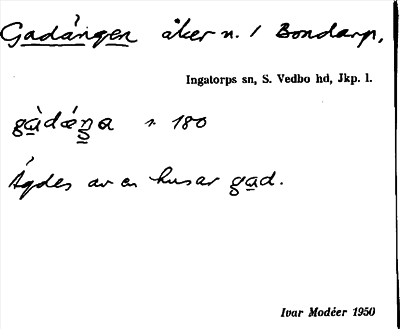 Gadängen åker n. / Bondarp,
Ingatorps sn, S. Vedbo hd, Jkp. l.
gàdǽŋa n 180
Ägdes av en husar gad.
Ivar Modéer 1950